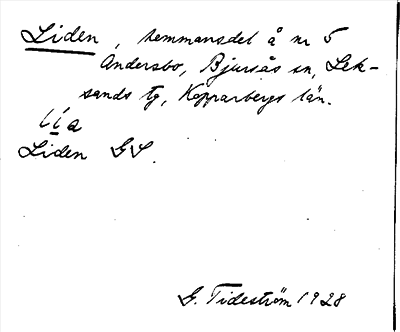 Liden, hemmansdel å nr 5
Andersbo, Bjursås sn, Lek-
sands tg, Kopparbergs län.
Liden GS.
G. Tideström 1928